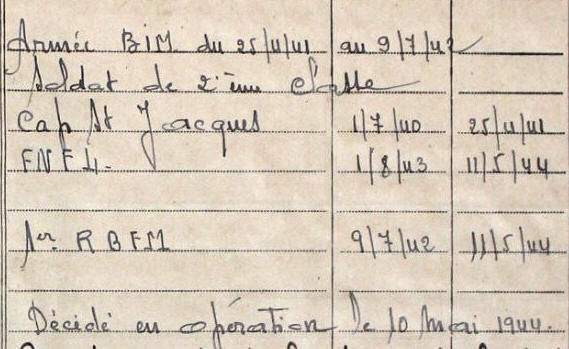 Armée BIM du 25/4/41 au 9/7/42
Soldat de 2ème Classe
Cap St Jacques 1/7/40 25/4/41
FNFL. 1/8/43 11/5/44
1er R B F M 9/7/42 11/5/44
Décidé en opération le 10 mai 1944.